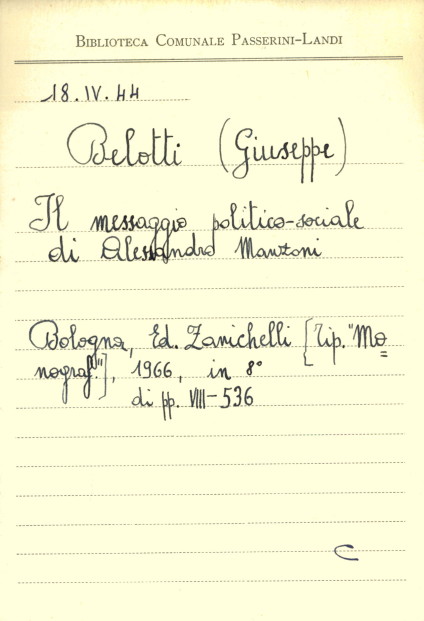 BIBLIOTECA COMUNALE PASSERINI-LANDI
18.IV.44
Belotti (Giuseppe)
Il messaggio politico-sociale
di Alessandro Manzoni
Bologna, Ed. Zanichelli [Tip. "Mo=
nograf."], 1966, in 8°
di pp. VIII-536
C